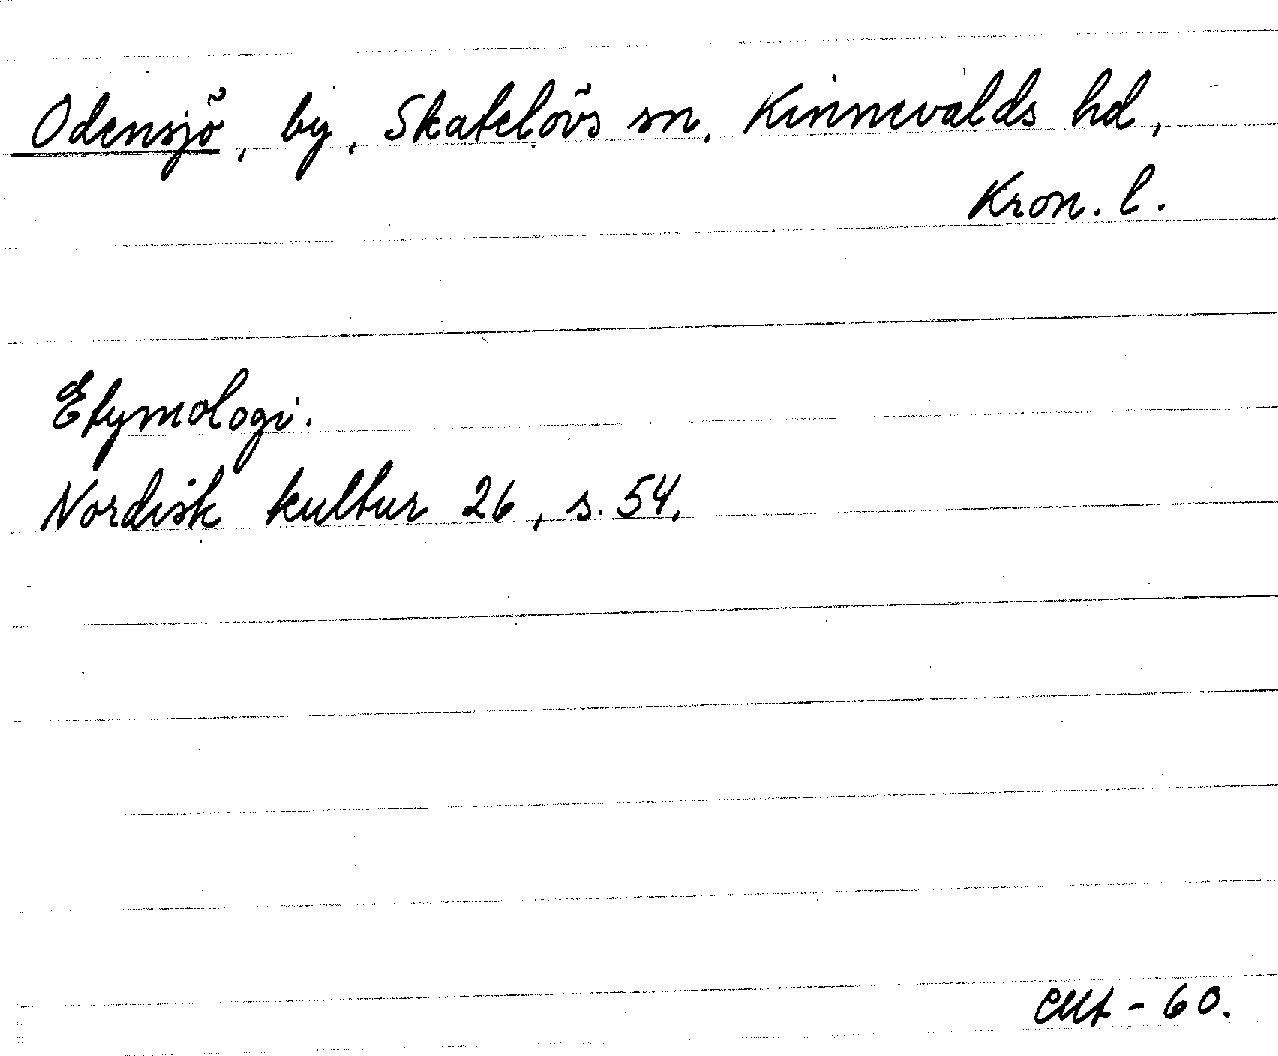 Odensjö, by, Skatelövs sn, Kinnevalds hd,
Kron. l.
Etymologi.
Nordisk kultur 26, s. 54.
- 60.